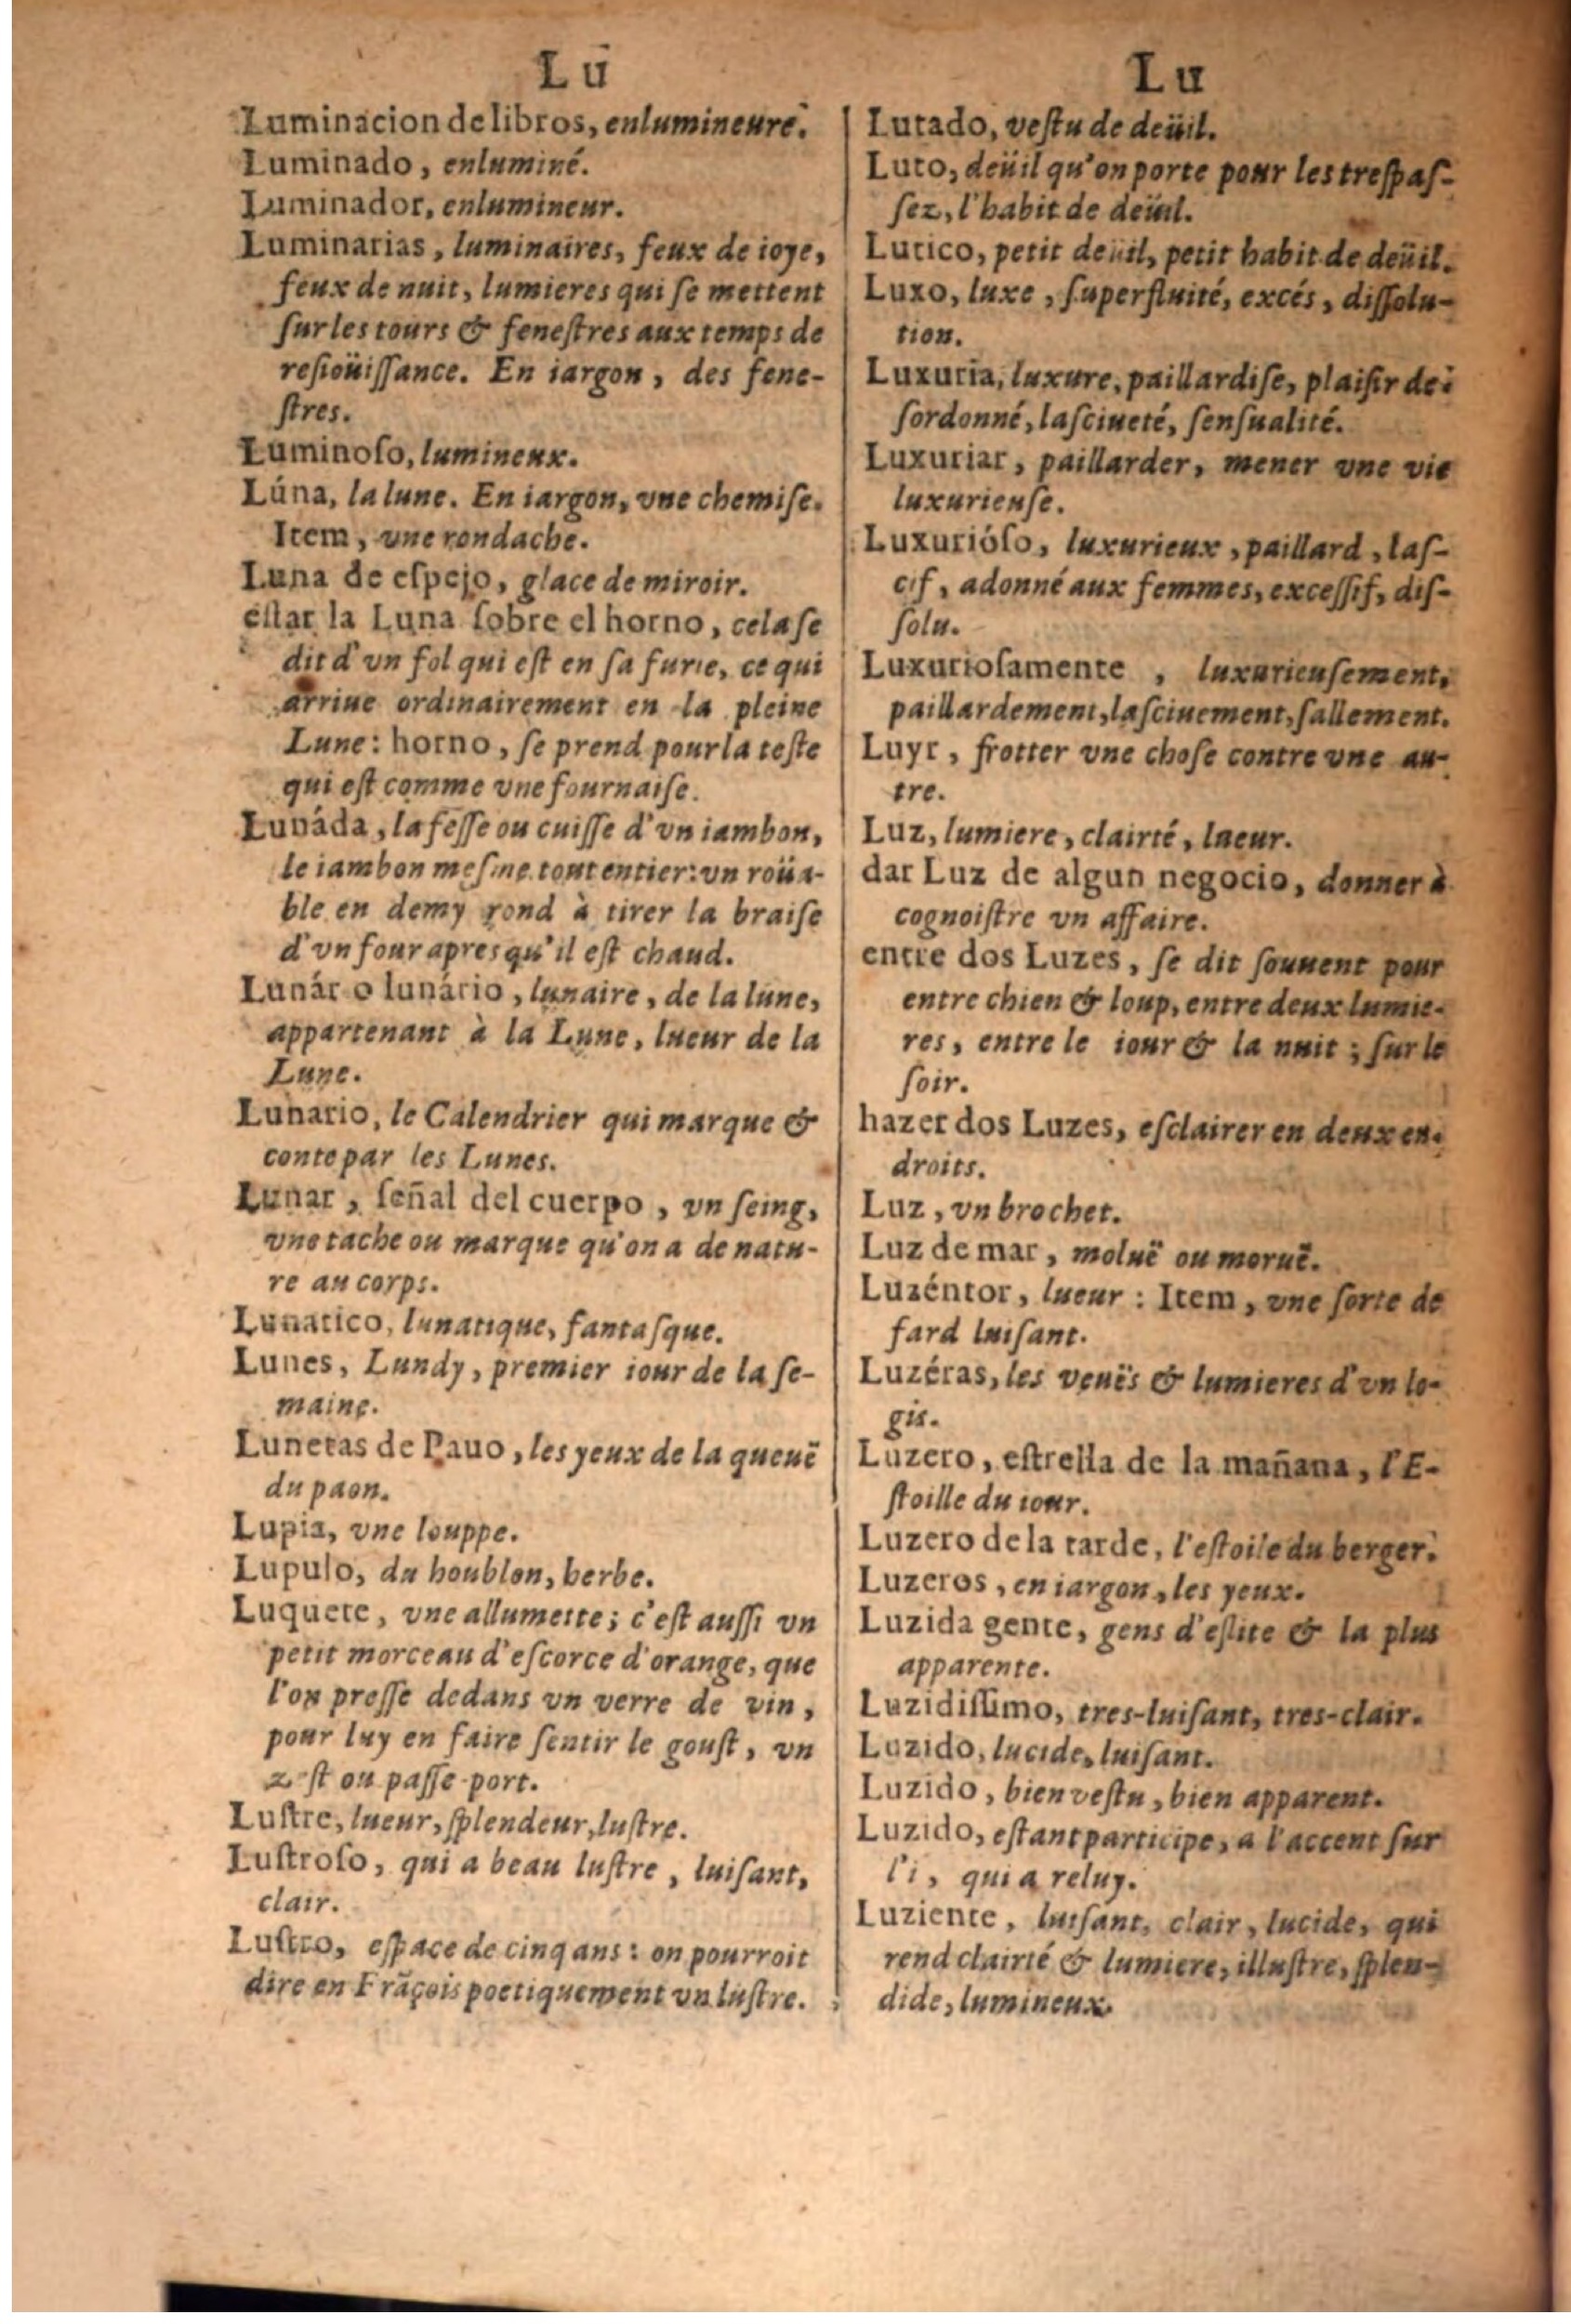 Lu
Luminacion de libros, enlumineure.
Luminado, enluminé.
Luminador, enlumineur.
Luminarias, luminaires, feux de ioye,
feux de nuit, lumieres qui ſe mettent
ſur les tours & feneſtres aux temps de
reſioüiſſance. En iargon, des fene-
ſtres.
Luminoſo, lumineux.
Lúna, la lune. En iargon, vne chemiſe.
Item, vne rondache.
Luna de eſpejo, glace de miroir.
eſtar la Luna ſobre el horno, cela ſe
dit d'vn fol qui eſt en ſa furie, ce qui
arriue ordinairement en la pleine
Lune: horno, ſe prend pour la teſte
qui eſt comme vne fournaiſe.
Lunáda, la feſſe ou cuiſſe d'vn iambon,
le iambon meſme tout entier: vn roüa-
ble en demy rond à tirer la braiſe
d'vn four apres qu'il eſt chaud.
Lunár o lunário, lunaire, de la lune,
appartenant à la Lune, lueur de la
Lune.
Lunario, le Calendrier qui marque &
conte par les Lunes.
Lunar, ſeñal del cuerpo, vn ſeing,
vne tache ou marque qu'on a de natu-
re au corps.
Lunatico, lunatique, fantaſque.
Lunes, Lundy, premier iour de la ſe-
maine.
Lunetas de Pauo, les yeux de la queuë
du paon.
Lupia, vne louppe.
Lupulo, du houblon, herbe.
Luquete, vne allumette; c'eſt auſſi vn
petit morceau d'eſcorce d'orange, que
l'on preſſe dedans vn verre de vin,
pour luy en faire ſentir le gouſt, vn
zeſt ou paſſe-port.
Luſtre, lueur, ſplendeur, luſtre.
Luſtroſo, qui a beau luſtre, luiſant,
clair.
Luſtro, eſpace de cinq ans: on pourroit
dire en Frãçois poetiquement vn luſtre.
Lu
Lutado, veſtu de deüil.
Luto, deüil qu'on porte pour les treſpaſ-
ſez, l'habit de deüil.
Lutico, petit deüil, petit habit de deüil.
Luxo, luxe, ſuperfluité, excés, diſſolu-
tion.
Luxuria, luxure, paillardiſe, plaiſir de-
ſordonné, laſciueté, ſenſualité.
Luxuriar, paillarder, mener vne vie
luxurieuſe.
Luxurióſo, luxurieux, paillard, laſ-
cif, adonné aux femmes, exceſſif, diſ-
ſolu.
Luxurioſamente, luxurieuſement,
paillardement, laſciuement, ſallement.
Luyr, frotter vne choſe contre vne au-
tre.
Luz, lumiere, clairté, lueur.
dar Luz de algun negocio, donner à
cognoiſtre vn affaire.
entre dos Luzes, ſe dit ſouuent pour
entre chien & loup, entre deux lumie-
res, entre le iour & la nuit; ſur le
ſoir.
hazer dos Luzes, eſclairer en deux en-
droits.
Luz, vn brochet.
Luz de mar, moluë ou moruë.
Luzéntor, lueur: Item, vne ſorte de
fard luiſant.
Luzéras, les veuës & lumieres d'vn lo-
gis.
Luzero, eſtrella de la mañana, l'E-
ſtoille du iour.
Luzero de la tarde, l'eſtoile du berger.
Luzeros, en iargon, les yeux.
Luzida gente, gens d'eſlite & la plus
apparente.
Luzidiſſimo, tres-luiſant, tres-clair.
Luzido, lucide, luiſant.
Luzido, bien veſtu, bien apparent.
Luzido, eſtant participe, a l'accent ſur
l'i, qui a reluy.
Luziente, luiſant, clair, lucide, qui
rend clairté & lumiere, illuſtre, ſplen-
dide, lumineux.